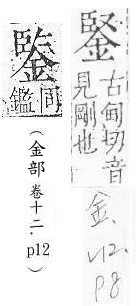 鋻
古甸切音
見剛也
金.V12.P8
鍳
同
鑑
（金部 卷十二．p12）